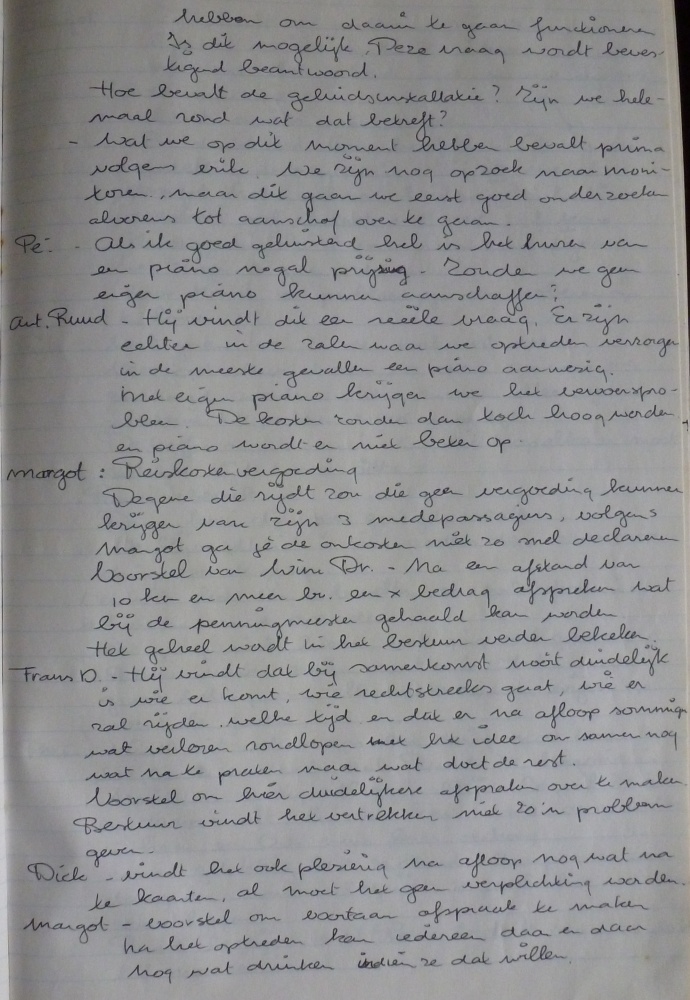 hebben om daarin te gaan functioneren
Is dit mogelijk. Deze vraag wordt beves-
tigend beantwoord.
Hoe bevalt de geluidsinstallatie? Zijn we hele-
maal rond wat dat betreft?
- Wat we op dit moment hebben bevalt prima
volgens erik. We zijn nog opzoek naar moni-
toren, maar dit gaan we eerst goed onderzoeken
alvorens tot aanschaf over te gaan.
Pé: - Als ik goed geluisterd heb is het huren van
en piano nogal prijzig. Zouden we geen
eigen piano kunnen aanschaffen?
Ant. Ruud - Hij vindt dit een reeële vraag. Er zijn
echter in de zalen waar we optreden verzorgen
in de meeste gevallen een piano aanwezig.
Met eigen piano krijgen we het vervoerspro-
bleem. De kosten zouden dan toch hoog worden
en piano wordt er niet beter op.
Margot : Reiskostenvergoeding
Degene die rijdt zou die geen vergoeding kunnen
krijgen van zijn 3 medepassagiers, volgens
Margot ga je de onkosten niet zo snel declareren
Voorstel van Wim Dr. - Na een afstand van
10 km en meer bv. een x bedrag afspreken wat
bij de penningmeester gehaald kan worden
Het geheel wordt in het bestuur verder bekeken.
Frans D. - Hij vindt dat bij samenkomst nooit duidelijk
is wie er komt, wie rechtstreeks gaat, wie er
zal rijden, welke tijd en dat er na afloop sommigen
wat verloren rondlopen met het idee om samen nog
wat na te praten maar wat doet de rest.
Voorstel om hier duidelijkere afspraken over te maken.
Bestuur vindt het vertrekken niet zo'n probleem
geven.
Dick - vindt het ook plezierig na afloop nog wat na
te kaarten, al moet het geen verplichting worden.
Margot - voorstel om voortaan afspraak te maken
na het optreden kan iedereen daar en daar
nog wat drinken indien ze dat willen.